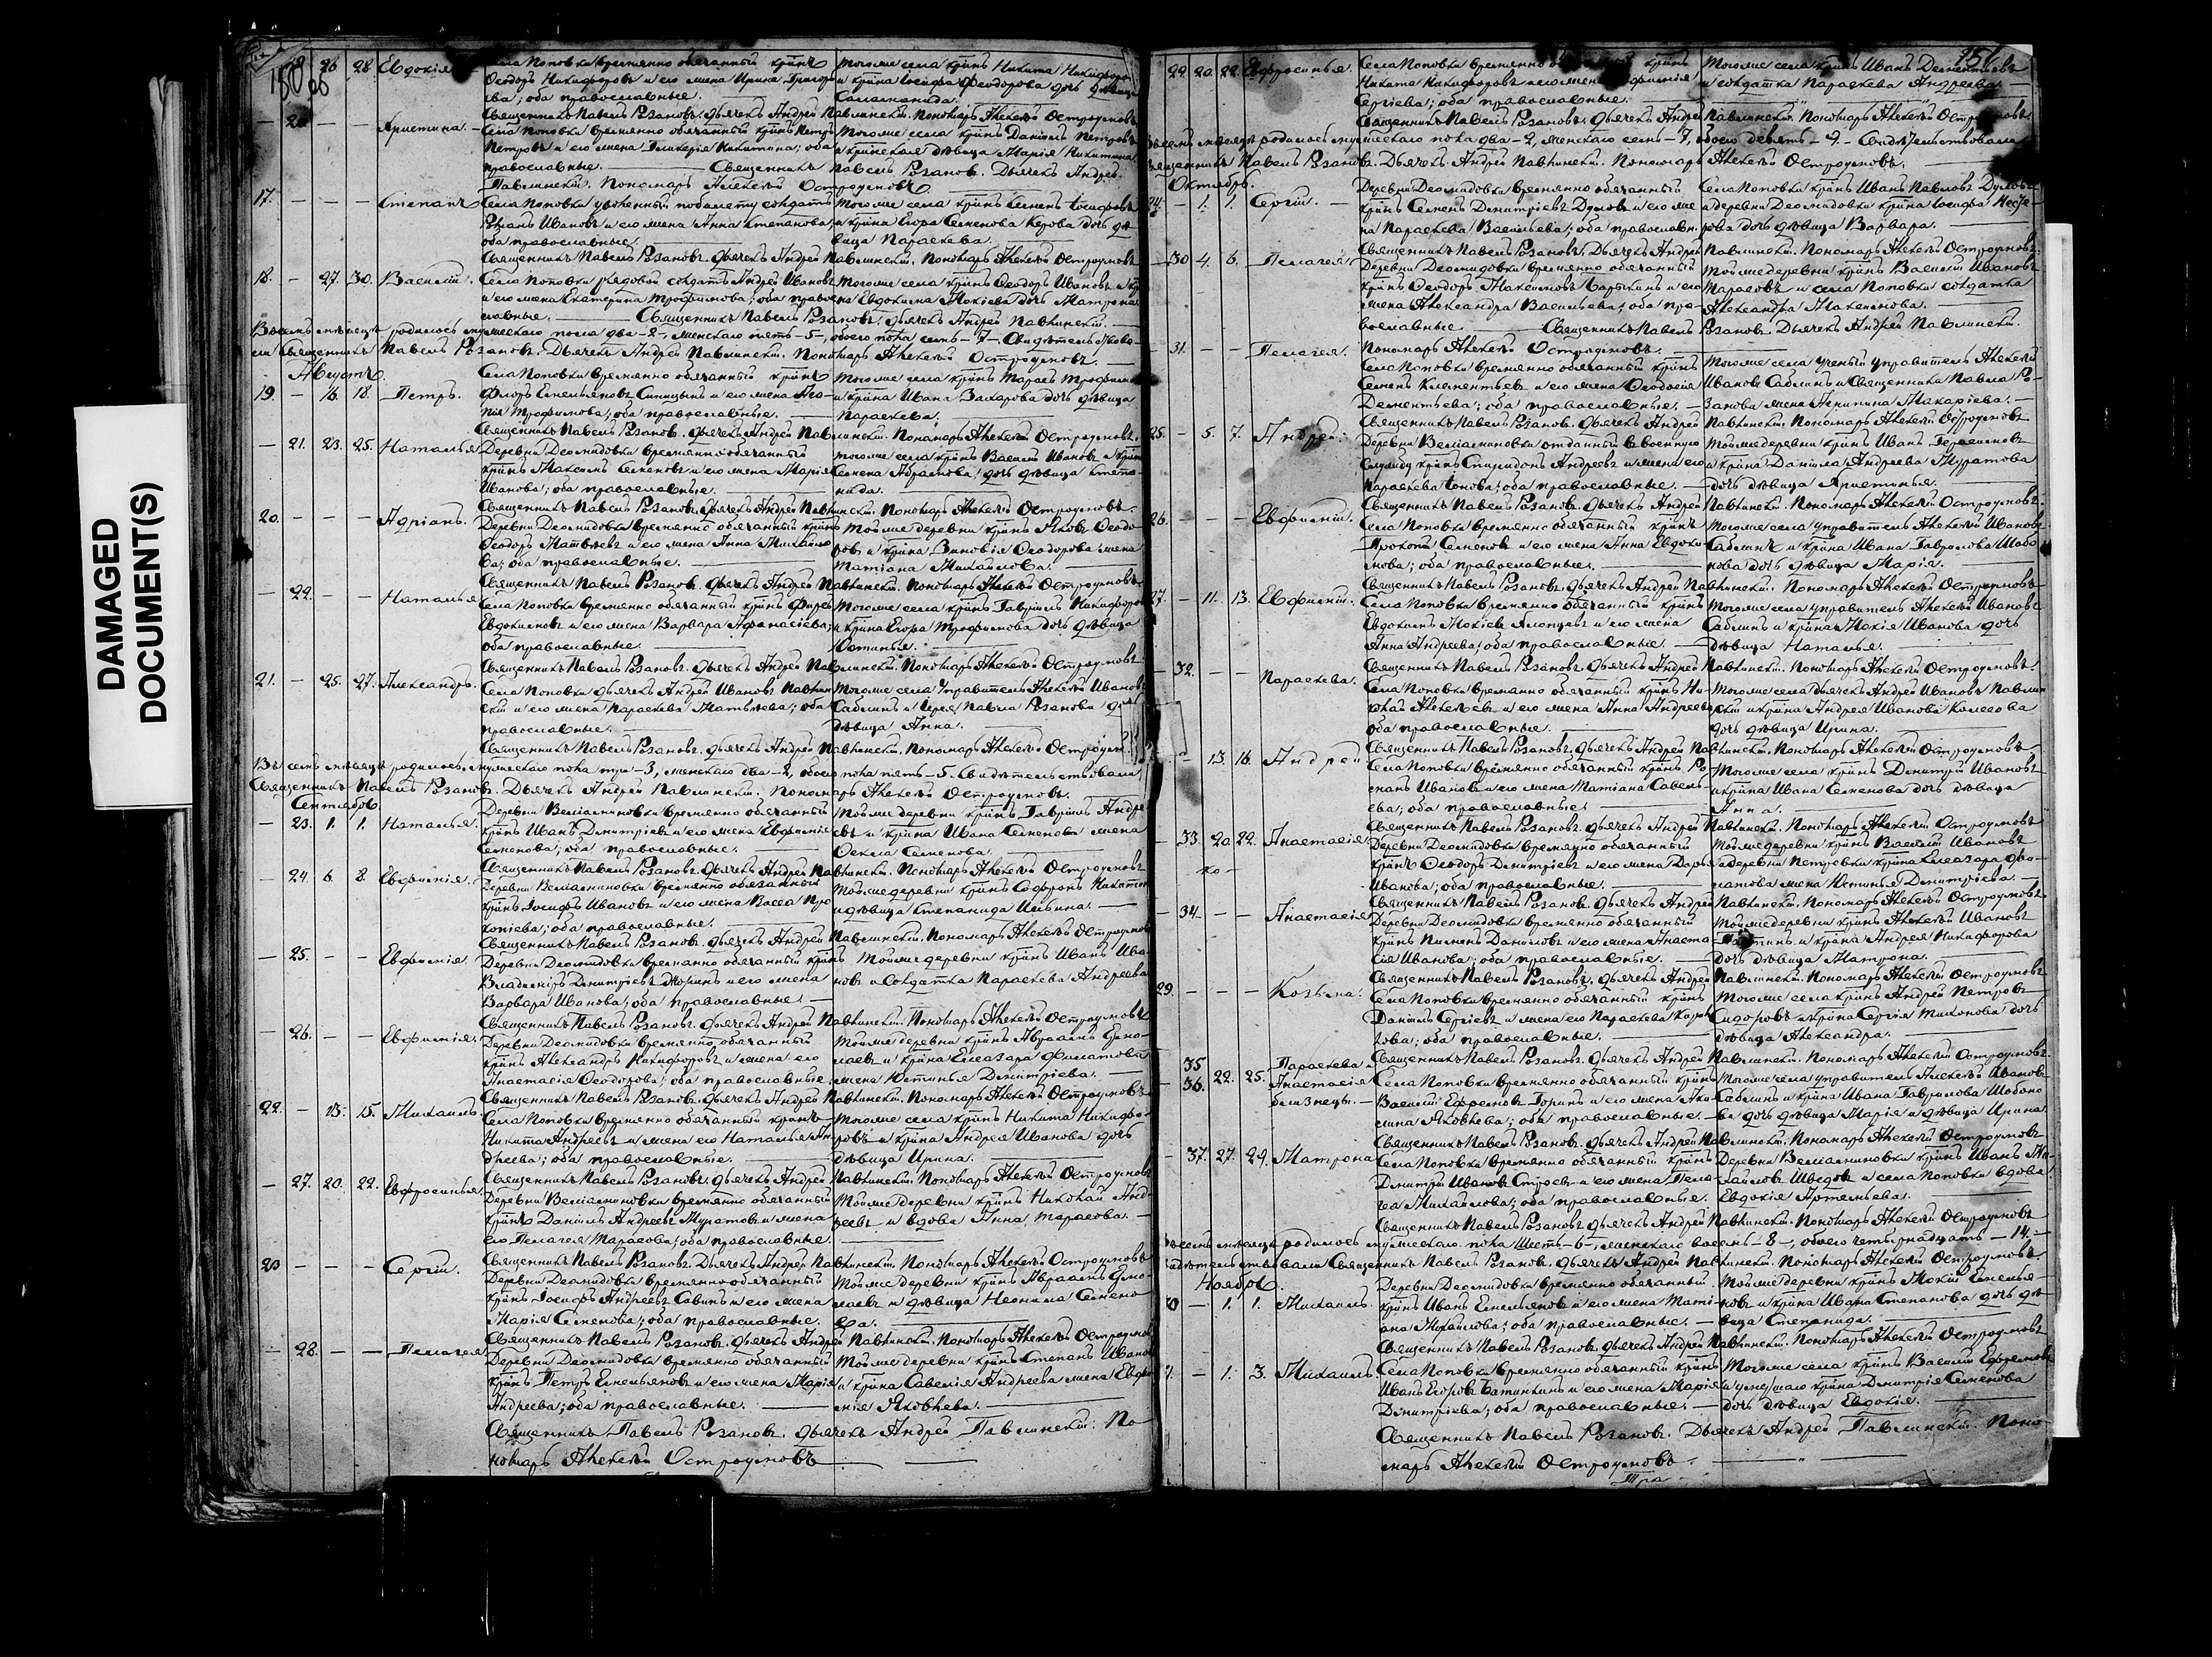 DAMAGED
DOCUMENT(S)
26. 28. Евдокія Села Поповки временно обязанный крѣнъ
Ѳеодоръ Никифоровъ и его жена Ирина Григорь
ева; оба православные.
Тогоже села крѣнъ Никита Никифоро
и крѣна Іосифа Ѳеодорова дочь дѣвица
Саламанида.
Священникъ Павелъ Розановъ. Дьячекъ Андрей Павлинскій. Пономарь Алексѣй Остроумовъ
Христина. Села Поповки временно обязанный крѣнъ Петръ
Петровъ и его жена Гликерія Никитина; оба
православные.
Тогоже села крѣнъ Даніилъ Петровъ
и крѣнская дѣвица Марія Никитина.
Священникъ Павелъ Розановъ. Дьячекъ Андрей
Павлинскій. Пономарь Алексѣй Остроумовъ
17. — — — Степанъ Села Поповки уволенный по билету солдатъ
Романъ Ивановъ и его жена Анна Степанова;
оба православные.
Тогоже села крѣнъ Семенъ Іосифовъ
и крѣна Егора Семенова Керова дочь дѣ-
вица Параскева.
Священникъ Павелъ Розановъ. Дьячекъ Андрей Павлинскій. Пономарь Алексѣй Остроумовъ
18. — 27. 30. Василій. Села Поповки рядовой солдатъ Андрей Ивановъ
и его жена Екатерина Трофимова; оба право
славные.
Тогоже села крѣнъ Ѳеодоръ Ивановъ и крѣ
на Евдокима Мокіева дочь Матрона.
Священникъ Павелъ Розановъ. Дьячекъ Андрей Павлинскій.
Въ семъ мѣсяцѣ родилось мужескаго пола два-2-, женскаго пять-5-, обоего пола семь-7-. Свидѣтельствова-
ли Священникъ Павелъ Розановъ. Дьячекъ Андрей Павлинскій. Пономарь Алексѣй Остроумовъ.
Августъ.
19. — 16. 18. Петръ. Села Поповки временно обязанный крѣнъ
Флоръ Емельяновъ Синицынъ и его жена Ага-
пія Трофимова; оба православные.
Тогоже села крѣнъ Тарасъ Трофимо
и крѣна Ивана Захарова дочь дѣвица
Параскева.
Священникъ Павелъ Розановъ. Дьячекъ Андрей Павлинскій. Пономарь Алексѣй Остроумовъ.
— 21. 23. 25. Наталья Деревни Деомидовки временно обязанный
крѣнъ Максимъ Семеновъ и его жена Марія
Иванова; оба православные.
Тогоже села крѣнъ Василій Ивановъ и крѣн
Семена Абрамова дочь дѣвица Степа-
нида.
Священникъ Павелъ Розановъ. Дьячекъ Андрей Павлинскій. Пономарь Алексѣй Остроумовъ.
20. — — — Адріанъ. Деревни Деомидовки временно обязанный крѣнъ
Ѳеодоръ Матвѣевъ и его жена Анна Михайло
ва; оба православные.
Тойже деревни крѣнъ Яковъ Ѳеодо-
ровъ и крѣна Зиновія Ѳеодорова жена
Матіана Михайлова.
Священникъ Павелъ Розановъ. Дьячекъ Андрей Павлинскій. Пономарь Алексѣй Остроумовъ
— 22. — — Наталья Села Поповки временно обязанный крѣнъ Фирсъ
Евдокимовъ и его жена Варвара Афанасіева;
оба православные.
Тогоже села крѣнъ Гавріилъ Никифоро
и крѣна Егора Трофимова дочь дѣвица
Устинья.
Священникъ Павелъ Розановъ. Дьячекъ Андрей Павлинскій. Пономарь Алексѣй Остроумовъ
21. — 25. 27. Александръ. Села Поповки дьячекъ Андрей Ивановъ Павлин
скій и его жена Параскева Матвѣева; оба
православные.
Тогоже села Управитель Алексѣй Ивановъ
Саблинъ и Іерея Павла Розанова дочь
дѣвица Анна.
Священникъ Павелъ Розановъ. Дьячекъ Андрей Павлинскій. Пономарь Алексѣй Остроум.
Въ семъ мѣсяцѣ родилось мужескаго пола три-3, женскаго два-2, обоего пола пять-5. Свидѣтельствовали
Священникъ Павелъ Розановъ. Дьячекъ Андрей Павлинскій. Пономарь Алексѣй Остроумовъ.
Сентябрь
— 23. 1. 1. Наталья. Деревни Веліаминовки временно обязанный
крѣнъ Иванъ Димитріевъ и его жена Евфимія
Семенова; оба православные.
Тойже деревни крѣнъ Гавріилъ Андре
евъ и крѣна Ивана Семенова жена
Ѳекла Семенова.
Священникъ Павелъ Розановъ. Дьячекъ Андрей Павлинскій. Пономарь Алексѣй Остроумовъ
— 24. 6. 8. Евфимія. Деревни Веліаминовки временно обязанный
крѣнъ Іосифъ Ивановъ и его жена Васса Про
копіева; оба православные.
Тойже деревни крѣнъ Софронъ Никитин
и дѣвица Степанида Ильина.
Священникъ Павелъ Розановъ. Дьячекъ Андрей Павлинскій. Пономарь Алексѣй Остроумов
— 25. — — Евфимія. Деревни Деомидовки временно обязанный крѣнъ
Владиміръ Димитріевъ и его жена
Варвара Иванова; оба православные.
Тойже деревни крѣнъ Иванъ Ива
новъ и Солдатка Параскева Андреева
Священникъ Павелъ Розановъ. Дьячекъ Андрей Павлинскій. Пономарь Алексѣй Остроумовъ
— 26. — — Евфимія. Деревни Деомидовки временно обязанный
крѣнъ Александръ Никифоровъ и жена его
Анастасія Ѳеодорова; оба православные.
Тойже деревни крѣнъ Авраамъ Ермо-
лаевъ и крѣна Елеазара Филатова
жена Устинья Димитріева.
Священникъ Павелъ Розановъ. Дьячекъ Андрей Павлинскій. Пономарь Алексѣй Остроумовъ
22. — 13. 15. Михаилъ. Села Поповки временно обязанный крѣнъ
Никита Андреевъ и жена его Наталья Ан
дреева; оба православные.
Тогоже села крѣнъ Никита Никифо-
ровъ и крѣна Андрея Иванова дочь
дѣвица Ирина.
Священникъ Павелъ Розановъ. Дьячекъ Андрей Павлинскій. Пономарь Алексѣй Остроумовъ
— 27. 20. 22. Евфросинья. Деревни Веліаминовки временно обязанный
крѣнъ Даніилъ Андреевъ Муратовъ и жена
его Пелагея Тарасова; оба православные.
Тойже деревни крѣнъ Николай Анд-
реевъ и вдова Анна Тарасова.
Священникъ Павелъ Розановъ. Дьячекъ Андрей Павлинскій. Пономарь Алексѣй Остроумовъ
23 — — — Сергій. Деревни Деомидовки временно обязанный
крѣнъ Іосифъ Андреевъ Савинъ и его жена
Марія Семенова; оба православные.
Тойже деревни крѣнъ Авраамъ Ермо-
лаевъ и дѣвица Неонила Семено
ва.
Священникъ Павелъ Розановъ. Дьячекъ Андрей Павлинскій. Пономарь Алексѣй Остроумо
— 28. — — Пелагея Деревни Деомидовки временно обязанный
крѣнъ Петръ Емельяновъ и его жена Марія
Андреева; оба православные.
Тойже деревни крѣнъ Степанъ Иванов
и крѣна Савелія Андреева жена Евдо
кія Яковлева.
Священникъ Павелъ Розановъ. Дьячекъ Андрей Павлинскій. По-
номарь Алексѣй Остроумовъ
29. 20. 22. Евфросинья. Села Поповки временно обязанный крѣнъ
Никита Никифоровъ и его жена Евфимія
Сергіева; оба православные.
Тогоже села крѣнъ Иванъ Дементьевъ
и солдатка Параскева Андреева.
Священникъ Павелъ Розановъ. Дьячекъ Андрей Павлинскій. Пономарь Алексѣй Остроумовъ
Въ семъ мѣсяцѣ родилось мужескаго пола два-2, женскаго семь-7, обоего девять-9. Свидѣтельствовали
Священникъ Павелъ Розановъ. Дьячекъ Андрей Павлинскій. Пономарь Алексѣй Остроумовъ.
Октябрь.
24. — 1. 1. Сергій. Деревни Деомидовки временно обязанный
крѣнъ Семенъ Димитріевъ Думовъ и его же
на Параскева Васильева; оба православн.
Села Поповки крѣнъ Иванъ Павловъ
и деревни Деомидовки крѣна Іосифа
дочь дѣвица Варвара.
Священникъ Павелъ Розановъ. Дьячекъ Андрей Павлинскій. Пономарь Алексѣй Остроумовъ.
30 4. 6. Пелагея. Деревни Деомидовки временно обязанный
крѣнъ Ѳеодоръ Максимовъ и его
жена Александра Васильева; оба пра-
вославные.
Тойже деревни крѣнъ Василій Ивановъ
Тарасовъ и села Поповки солдатка
Александра Максимова.
Священникъ Павелъ Розановъ. Дьячекъ Андрей Павлинскій.
Пономарь Алексѣй Остроумовъ.
31. — — Пелагея. Села Поповки временно обязанный крѣнъ
Семенъ Климентьевъ и его жена Ѳеодосія
Дементьева; оба православные.
Тогоже села ученый управитель Алексѣй
Ивановъ Саблинъ и Священника Павла Ро-
занова жена Макаріева.
Священникъ Павелъ Розановъ. Дьячекъ Андрей Павлинскій. Пономарь Алексѣй Остроумовъ
25. — 5. 7. Андрей. Деревни Веліаминовки отданный въ военную
службу крѣнъ Спиридонъ Андреевъ и жена его
Параскева Іонова; оба православные.
Тойже деревни крѣнъ Иванъ Герасимовъ
и крѣна Даніила Андреева Муратова
дочь дѣвица Христинья.
Священникъ Павелъ Розановъ. Дьячекъ Андрей Павлинскій. Пономарь Алексѣй Остроумовъ.
26. — — — Евфимій. Села Поповки временно обязанный крѣнъ
Прокопій Семеновъ и его жена Анна Евдоки-
мова; оба православные.
Тогоже села управитель Алексѣй Ивановъ
Саблинъ и крѣна Ивана Гаврилова Шабо
нова дочь дѣвица Марія.
Священникъ Павелъ Розановъ. Дьячекъ Андрей Павлинскій. Пономарь Алексѣй Остроумовъ
27. — 11. 13. Евфимій. Села Поповки временно обязанный крѣнъ
Евдокимъ Мокіевъ и его жена
Анна Андреева; оба православные.
Тогоже села управитель Алексѣй Ивановъ
Саблинъ и крѣна Мокія Иванова дочь
дѣвица Наталья.
Священникъ Павелъ Розановъ. Дьячекъ Андрей Павлинскій. Пономарь Алексѣй Остроумовъ.
32. — — Параскева. Села Поповки временно обязанный крѣнъ Ни-
колай Алексѣевъ и его жена Анна Андреева;
оба православные.
Тогоже села дьячекъ Андрей Ивановъ Павлин
скій и крѣна Андрея Иванова Колесова
дочь дѣвица Ирина.
Священникъ Павелъ Розановъ. Дьячекъ Андрей Павлинскій. Пономарь Алексѣй Остроумовъ.
— 13. 16. Андрей Села Поповки временно обязанный крѣнъ Ро-
манъ Ивановъ и его жена Матіана Савель-
ева; оба православные.
Тогоже села крѣнъ Димитрій Ивановъ
и крѣна Ивана Семенова дочь дѣвица
Анна.
Священникъ Павелъ Розановъ. Дьячекъ Андрей Павлинскій. Пономарь Алексѣй Остроумовъ
33. 20. 22. Анастасія. Деревни Деомидовки временно обязанный
крѣнъ Ѳеодоръ Димитріевъ и его жена Дарья
Иванова; оба православные.
Тойже деревни крѣнъ Василій Ивановъ
и деревни Петровки крѣна Елеазара Фи-
латова жена Устинья Димитріева.
Священникъ Павелъ Розановъ. Дьячекъ Андрей Павлинскій. Пономарь Алексѣй Остроумовъ
34. — — Анастасія Деревни Деомидовки временно обязанный
крѣнъ Пименъ Даниловъ и его жена Анаста-
сія Иванова; оба православные.
Тойже деревни крѣнъ Алексѣй Ивановъ
и крѣна Андрея Никифорова
дочь дѣвица Матрона.
Священникъ Павелъ Розановъ. Дьячекъ Андрей Павлинскій. Пономарь Алексѣй Остроумовъ
29. — — — Козьма. Села Поповки временно обязанный крѣнъ
Даніилъ Сергіевъ и жена его Параскева
оба православные.
Тогоже села крѣнъ Андрей Петровъ
Сидоровъ и крѣна Сергія Тихонова дочь
дѣвица Александра.
Священникъ Павелъ Розановъ. Дьячекъ Андрей Павлинскій. Пономарь Алексѣй Остроумовъ.
35 36. 22. 25. Параскева и
Анастасія
близнецы.
Села Поповки временно обязанный крѣнъ
Василій Ефремовъ Горинъ и его жена Аку-
лина Яковлева; оба православные.
Тогоже села управитель Алексѣй Ивановъ
Саблинъ и крѣна Ивана Гаврилова Шабоно
ва дочь дѣвица Марія и дѣвица Ирина
Священникъ Павелъ Розановъ. Дьячекъ Андрей Павлинскій. Пономарь Алексѣй Остроумовъ
— 37. 27. 29. Матрона Села Поповки временно обязанный крѣнъ
Димитрій Ивановъ и его жена Пела-
гея Михайлова; оба православные.
Деревни Веліаминовки крѣнъ Иванъ Ми-
хайловъ Шведовъ и села Поповки вдова
Евдокія Артемьева.
Священникъ Павелъ Розановъ. Дьячекъ Андрей Павлинскій. Пономарь Алексѣй Остроумовъ
Въ семъ мѣсяцѣ родилось мужескаго пола шесть-6-, женскаго восемь-8-, обоего четырнадцать-14.
Свидѣтельствовали Священникъ Павелъ Розановъ. Дьячекъ Андрей Павлинскій. Пономарь Алексѣй Остроумовъ.
Ноябрь.
30 — 1. 1. Михаилъ. Деревни Деомидовки временно обязанный
крѣнъ Иванъ Емельяновъ и его жена Мати-
ана Михайлова; оба православные.
Тойже деревни крѣнъ Мокій Емелья-
новъ и крѣна Ивана Степанова дочь дѣ-
вица Степанида.
Священникъ Павелъ Розановъ. Дьячекъ Андрей Павлинскій. Пономарь Алексѣй Остроумовъ
— 1. 3. Михаилъ Села Поповки временно обязанный крѣнъ
Иванъ Егоровъ и его жена Марія
Димитріева; оба православные.
Тогоже села крѣнъ Василій Ефремовъ
и умершаго крѣна Димитрія Семенова
дочь дѣвица Евдокія.
Священникъ Павелъ Розановъ. Дьячекъ Андрей Павлинскій. Поно-
марь Алексѣй Остроумовъ.